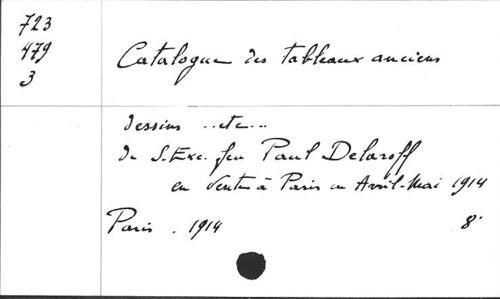 723
479
3
Catalogue des tableaux anciens
dessins ..etc...
de S. Exc. feu Paul Delaroff
en Vente à Paris en Avril-Mai 1914
Paris . 1914 8°